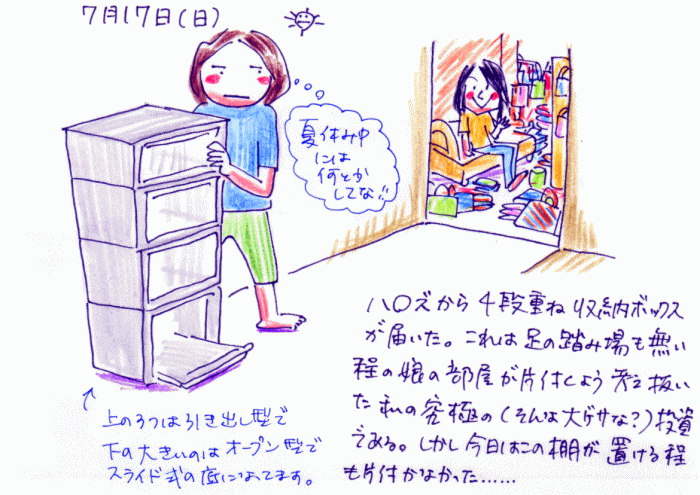 7月17日(日)
夏休み中
には
何とか
してな!!
ハ〇ズから4段重ね収納ボックス
が届いた。これは足の踏み場も無い
程の娘の部屋が片付くよう考え抜い
た私の究極の(そんな大ゲサな?)投資
である。しかし今日はこの棚が置ける程
も片付かなかった……
上の3つは引き出し型で
下の大きいのはオープン型で
スライド式の扉になってます。